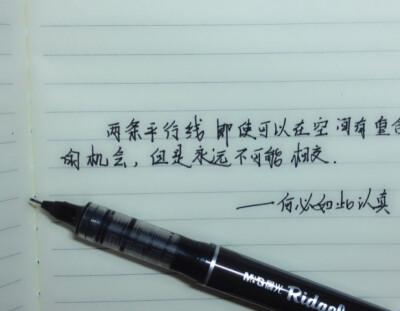 两条平行线即使可以在空间有重合
的机会，但是永远不可能相交.
——何必如此认真
M&G晨光 Ridge